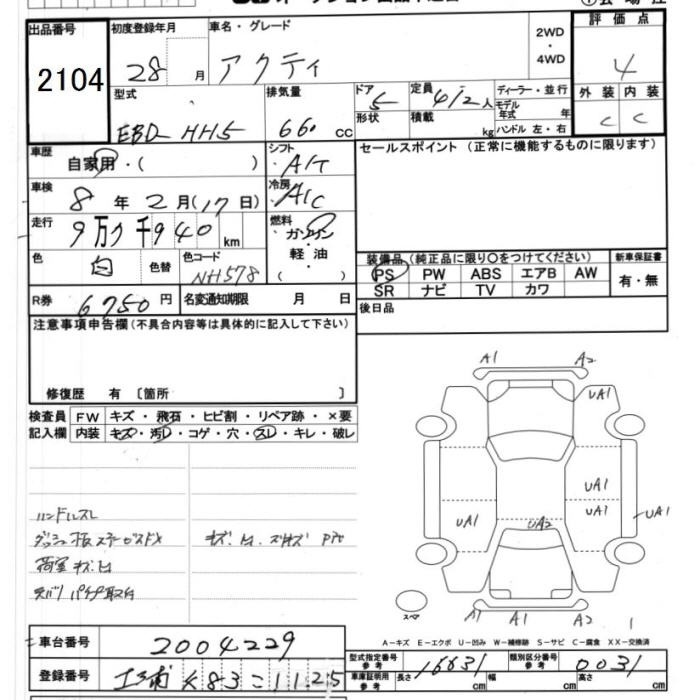 出品番号 初度登録年月 車名・グレード 2WD・4WD 評価点
2104 28月 アクティ 4
型式 排気量 ドア 5 定員 4/2人 ディーラー・並行 外装 内装
EBD-HH5 660 cc 形状 積載 kg モデル年式 年 ハンドル 左・右 C C
車歴 自家用・( ) シフト A/T セールスポイント (正常に機能するものに限ります)
車検 8年2月(17日) 冷房 A/C
走行 9万7千940km 燃料 ガソリン・軽油 ( )
色 白 色替 色コード NH578
装備品 (純正品に限り○をつけてください) 新車保証書
PS PW ABS エアB AW 有・無
SR ナビ TV カワ
R券 6750円 名変通知期限 月 日
後日品
注意事項申告欄(不具合内容等は具体的に記入して下さい)
修復歴 有 〔箇所 〕
検査員 FW キズ・飛石・ヒビ割・リペア跡・×要
記入欄 内装 キズ・汚レ・コゲ・穴・スレ・キレ・破レ
A1 A2
UA1
UA1
UA1
UA1 UA2 UA1
ハンドルスレ
荷室キズ凹
スペア A1 A1 A2
A-キズ E-エクボ U-凹み W-補修跡 S-サビ C-腐食 XX-交換済
車台番号 2004229
型式指定番号 参考 16631 類別区分番号 参考 0031
登録番号 K83 = 1125
車庫証明用 参考 長さ cm 幅 cm 高さ cm